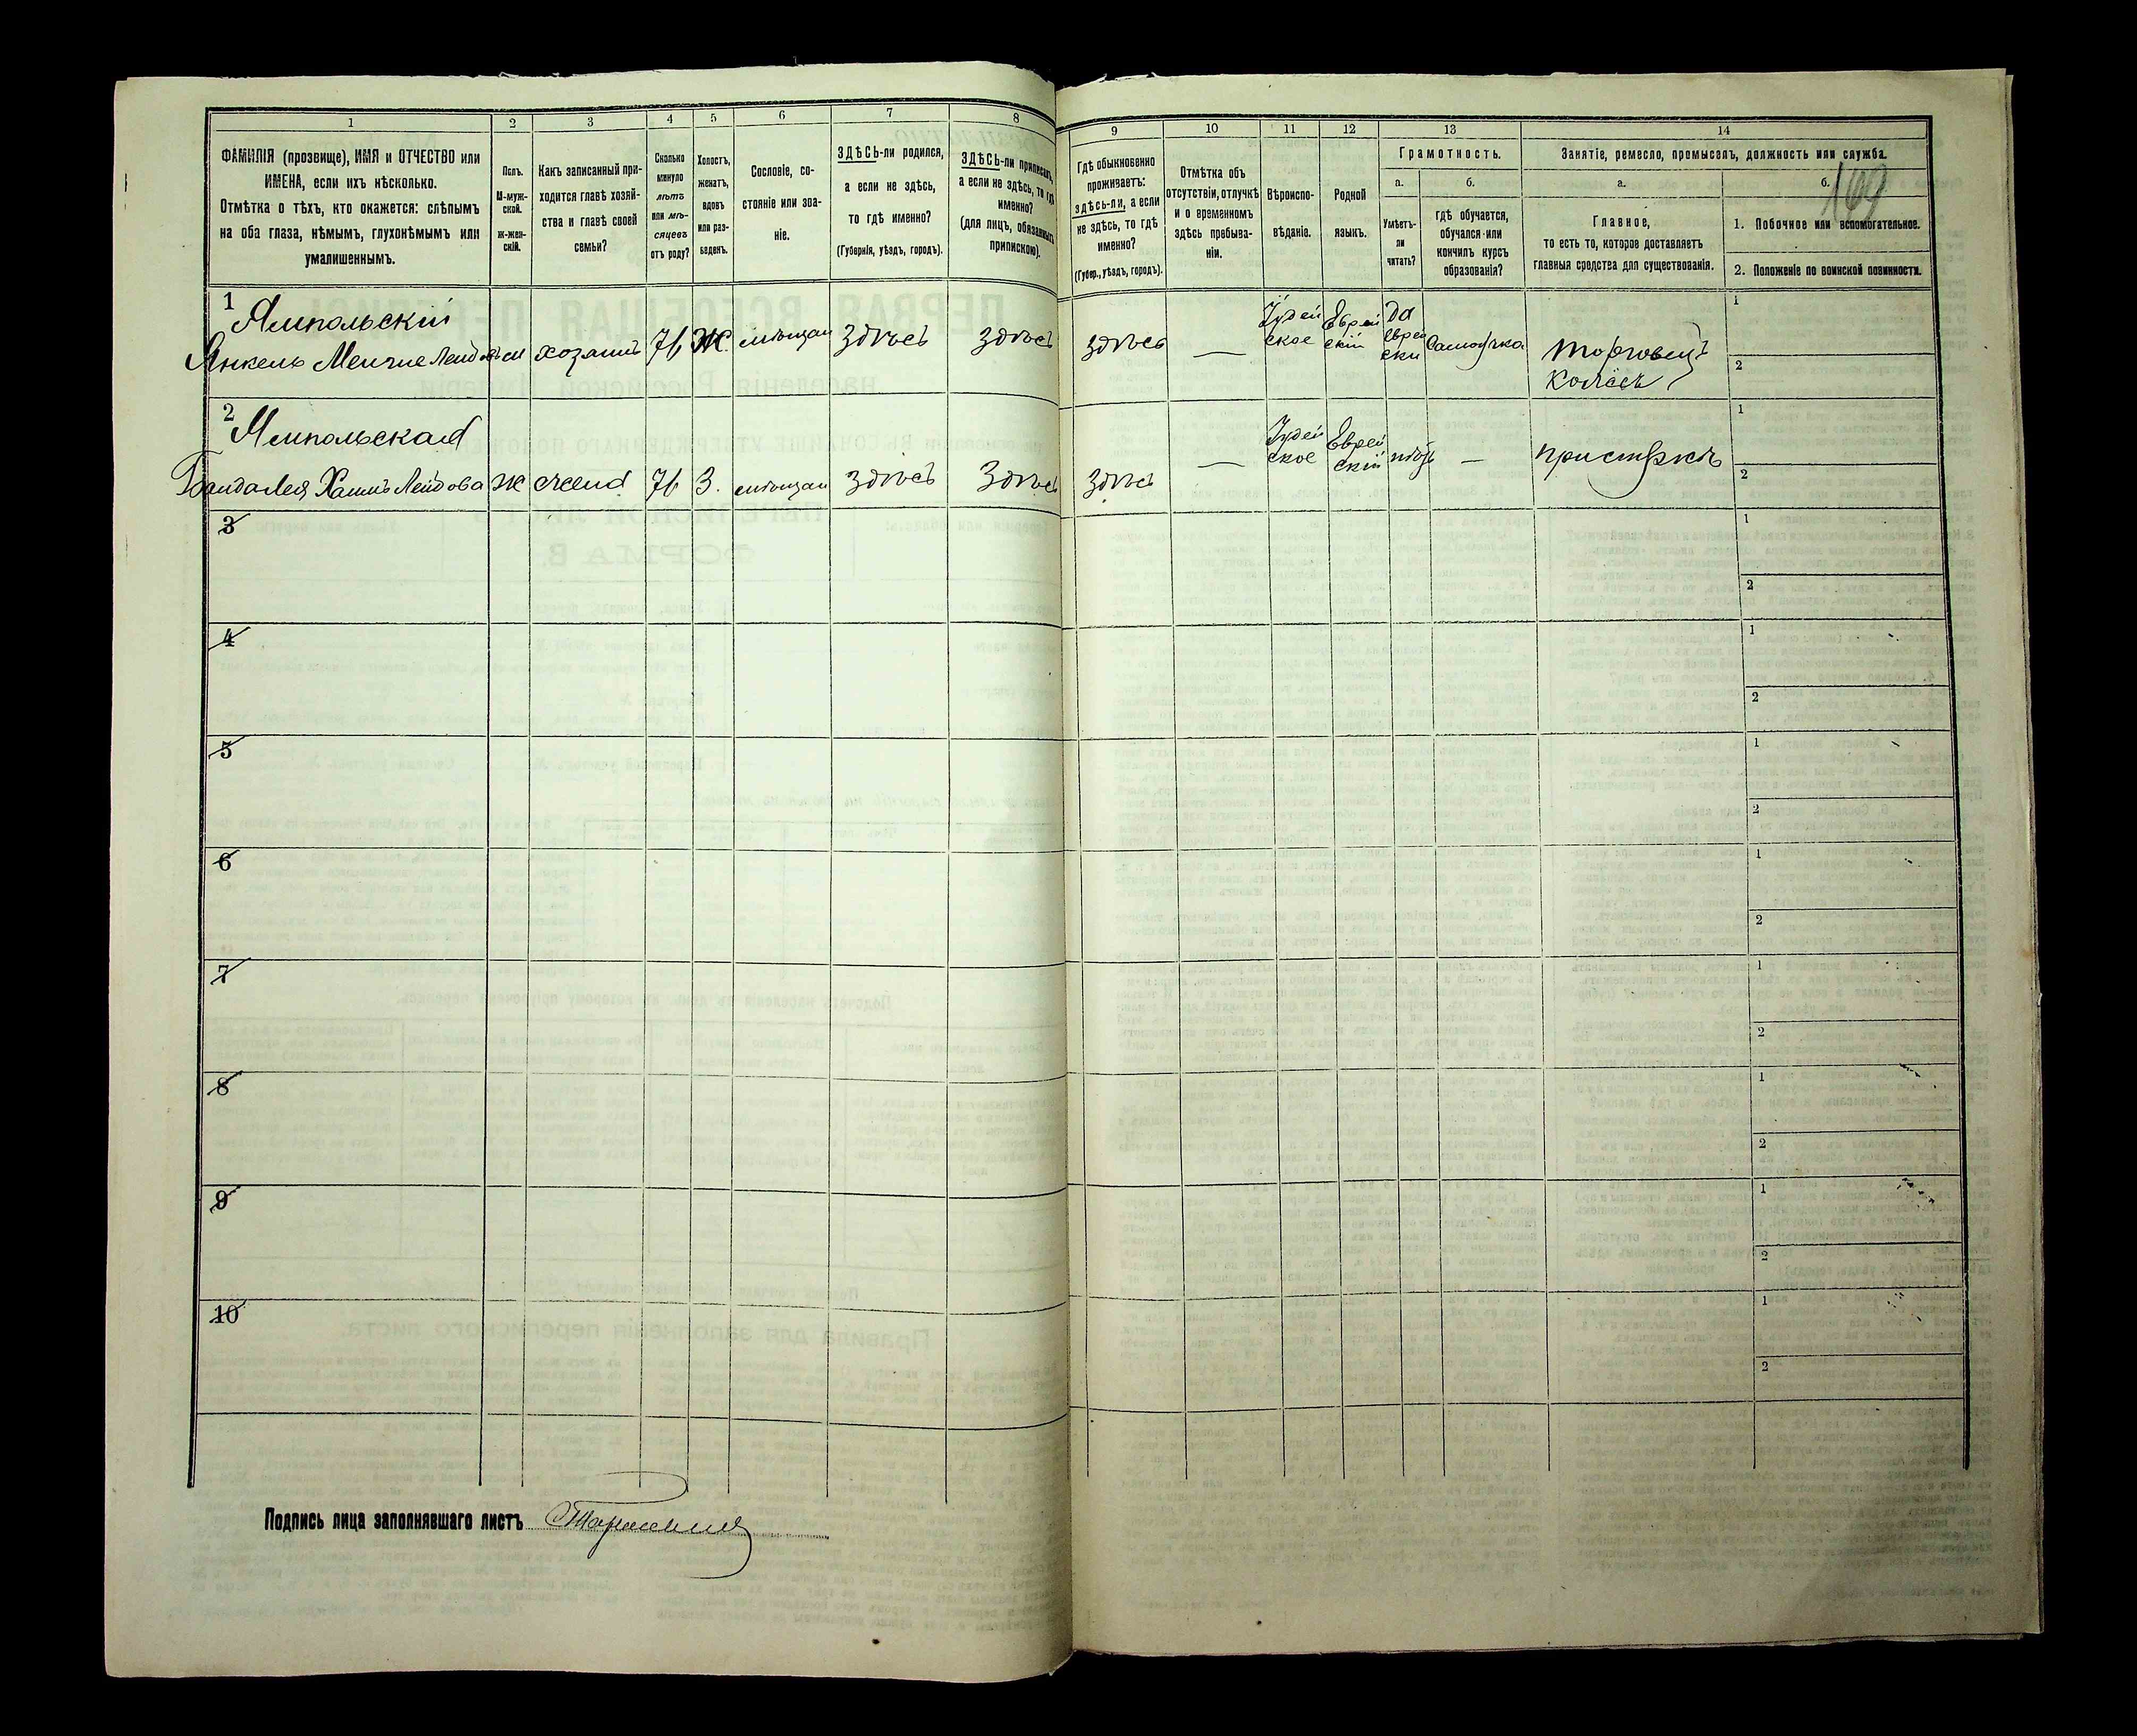 1 2 3 4 5 6 7 8 9 10 11 12 13 14
ФАМИЛІЯ (прозвище), ИМЯ и ОТЧЕСТВО или
ИМЕНА, если ихъ нѣсколько.
Отмѣтка о тѣхъ, кто окажется: слѣпымъ
на оба глаза, нѣмымъ, глухонѣмымъ или
умалишеннымъ.
Полъ.
М-муж-
ской.
ж-жен-
скій.
Какъ записанный при-
ходится главѣ хозяй-
ства и главѣ своей
семьи?
Сколько
минуло
лѣтъ
или мѣ-
сяцевъ
отъ роду?
Холостъ,
женатъ,
вдовъ
или раз-
веденъ.
Сословіе, со-
стояніе или зва-
ніе.
ЗДѢСЬ-ли родился,
а если не здѣсь,
то гдѣ именно?
(Губернія, уѣздъ, городъ).
ЗДѢСЬ-ли приписанъ,
а если не здѣсь, то гдѣ
именно?
(для лицъ, обязанныхъ
припискою).
Гдѣ обыкновенно
проживаетъ:
здѣсь-ли, а если
не здѣсь, то гдѣ
именно?
(Губер., уѣздъ, городъ).
Отмѣтка объ
отсутствіи, отлучкѣ
и о временномъ
здѣсь пребыва-
ніи.
Вѣроиспо-
вѣданіе.
Родной
языкъ.
Грамотность.
а.
Умѣетъ-
ли
читать?
б.
гдѣ обучается,
обучался или
кончилъ курсъ
образованія?
Занятіе, ремесло, промыселъ, должность или служба.
а.
Главное,
то есть то, которое доставляетъ
главныя средства для существованія.
б.
169
1. Побочное или вспомогательное.
2. Положеніе по воинской повинности.
1
Ямпольскій
Янкель хозяинъ Ж. мѣщан здѣсь здѣсь здѣсь —
Іудей
ское
Еврей
скій
Да
еврей
ски
Самоучка
торговецъ
1
2
2
Ямпольская
Хаимъ Лейбова Ж жена З. мѣщан здѣсь здѣсь здѣсь —
Іудей
ское
Еврей
скій
нѣтъ — при мужѣ
1
2
3
1
2
4
1
2
5
1
2
6
1
2
7
1
2
8
1
2
9
1
2
10
1
2
Подпись лица заполнявшаго листъ